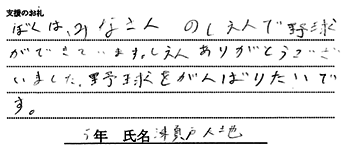 支援のお礼
ぼくは、みなさんのしえんで野球
ができています。しえんありがとうござ
いました。野球をがんばりたいで
す。
5年 氏名